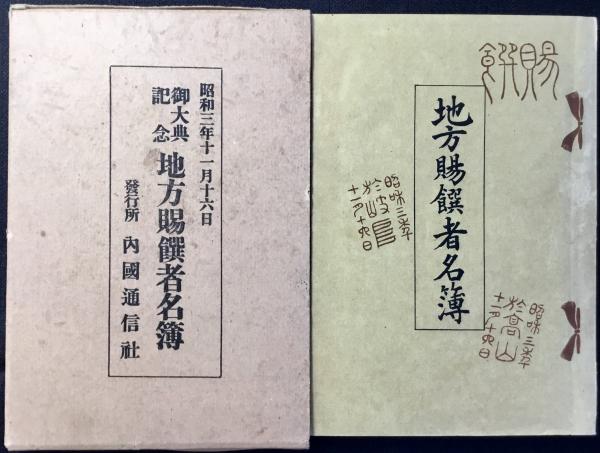 昭和三年十一月十六日
御大典
記念
地方賜饌者名簿
發行所 內國通信社
賜饌
地方賜饌者名簿
昭和三季
於岐阜
十一月十六日
昭和三季
於高山
十一月十六日